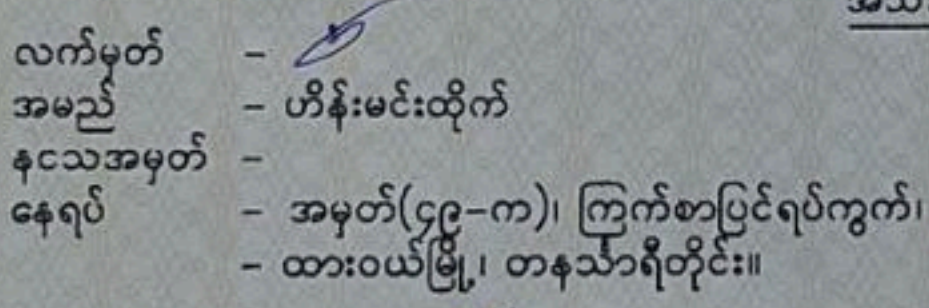 လက်မှတ် –
အမည် – ဟိန်းမင်းထိုက်
နငသအမှတ် –
နေရပ် – အမှတ်(၄၉–က)၊ ကြက်စာပြင်ရပ်ကွက်၊
– ထားဝယ်မြို့၊ တနင်္သာရီတိုင်း။